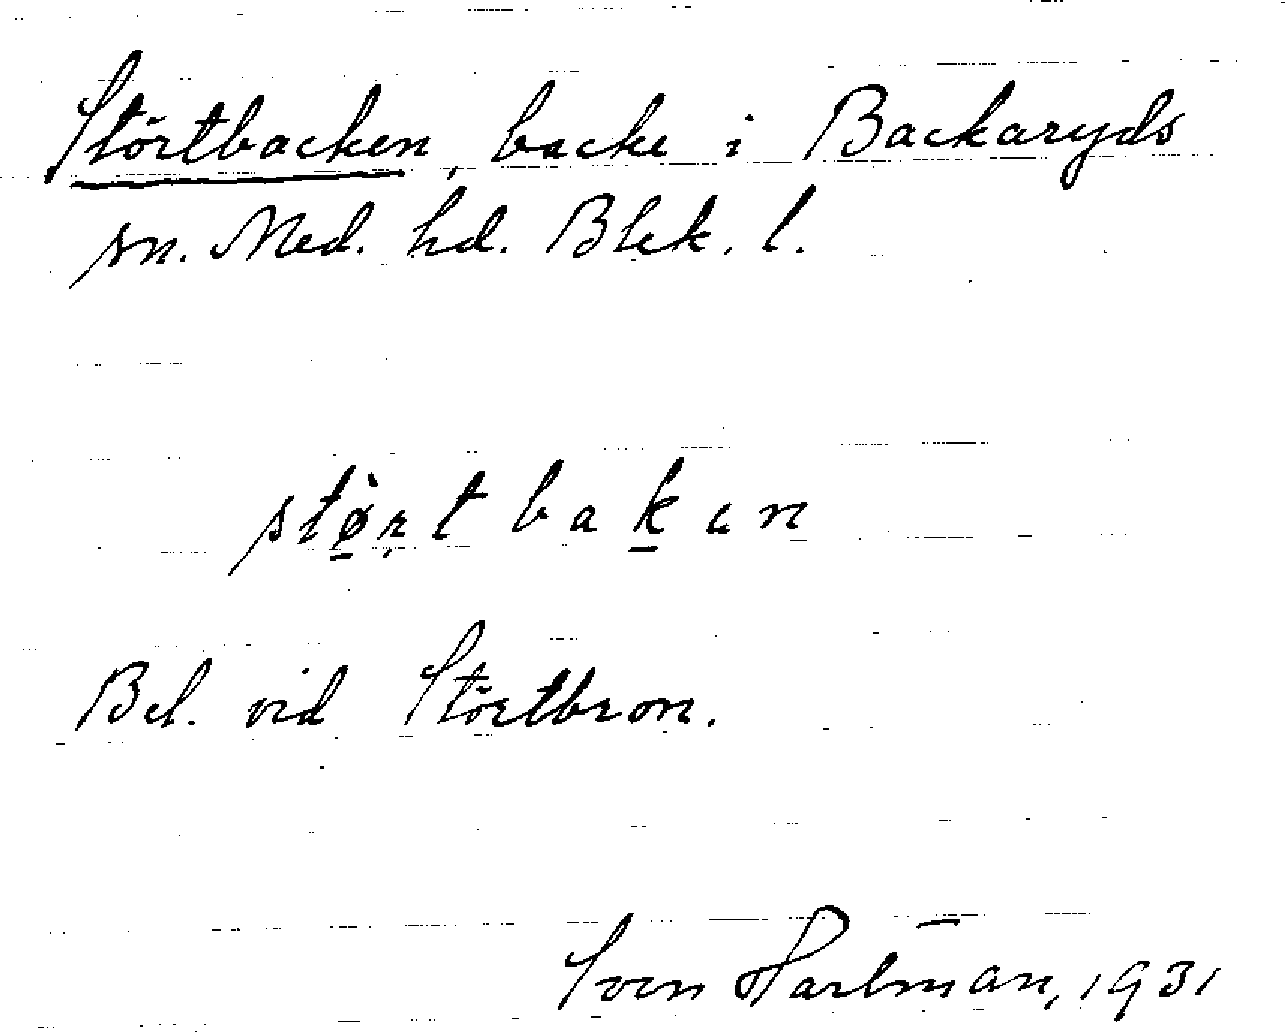 Störtbacken, backe i Backaryds
sn. Med. hd. Blek. l.
stø̀rt baken
Bel. vid Störtbron.
Sven Hartman, 1931